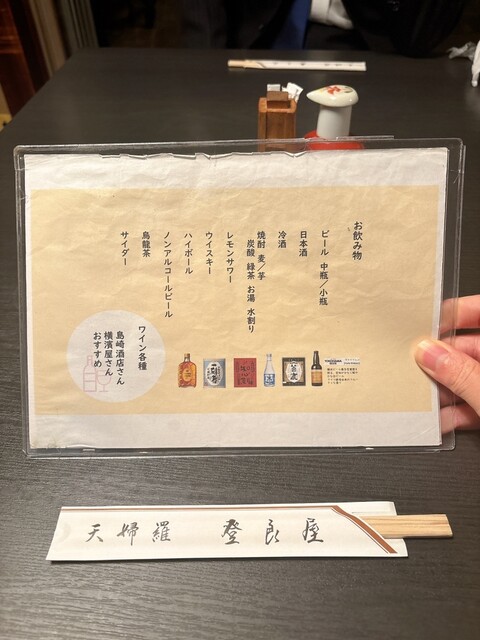 お飲み物
ビール 中瓶／小瓶
日本酒
冷酒
焼酎 麦／芋
炭酸 緑茶 お湯 水割り
レモンサワー
ウイスキー
ハイボール
ノンアルコールビール
烏龍茶
サイダー
ワイン各種
島崎酒店さん
横濱屋さん
おすすめ
天婦羅 登良屋